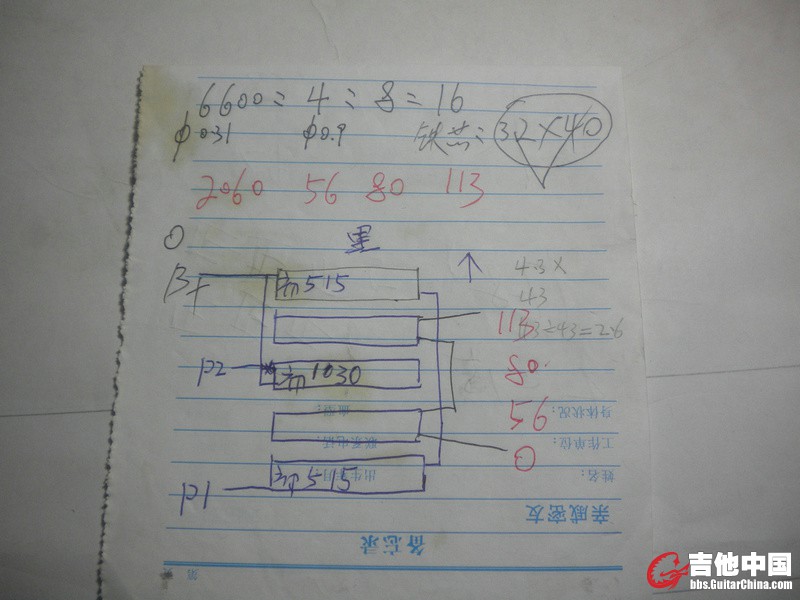 6600 : 4 : 8 = 16
φ0.31 φ0.9 铁芯: 32×40
2060 56 80 113
0 里
B+ 初515 ↑ 4.3×
43
113 ÷43=2.6
P2 初1030 80
56
0
P1 初515
血型:
身体状况:
联系电话:
工作单位:
出生年月:
姓名:
亲戚密友
备忘录
第
吉他中国
bbs.GuitarChina.com